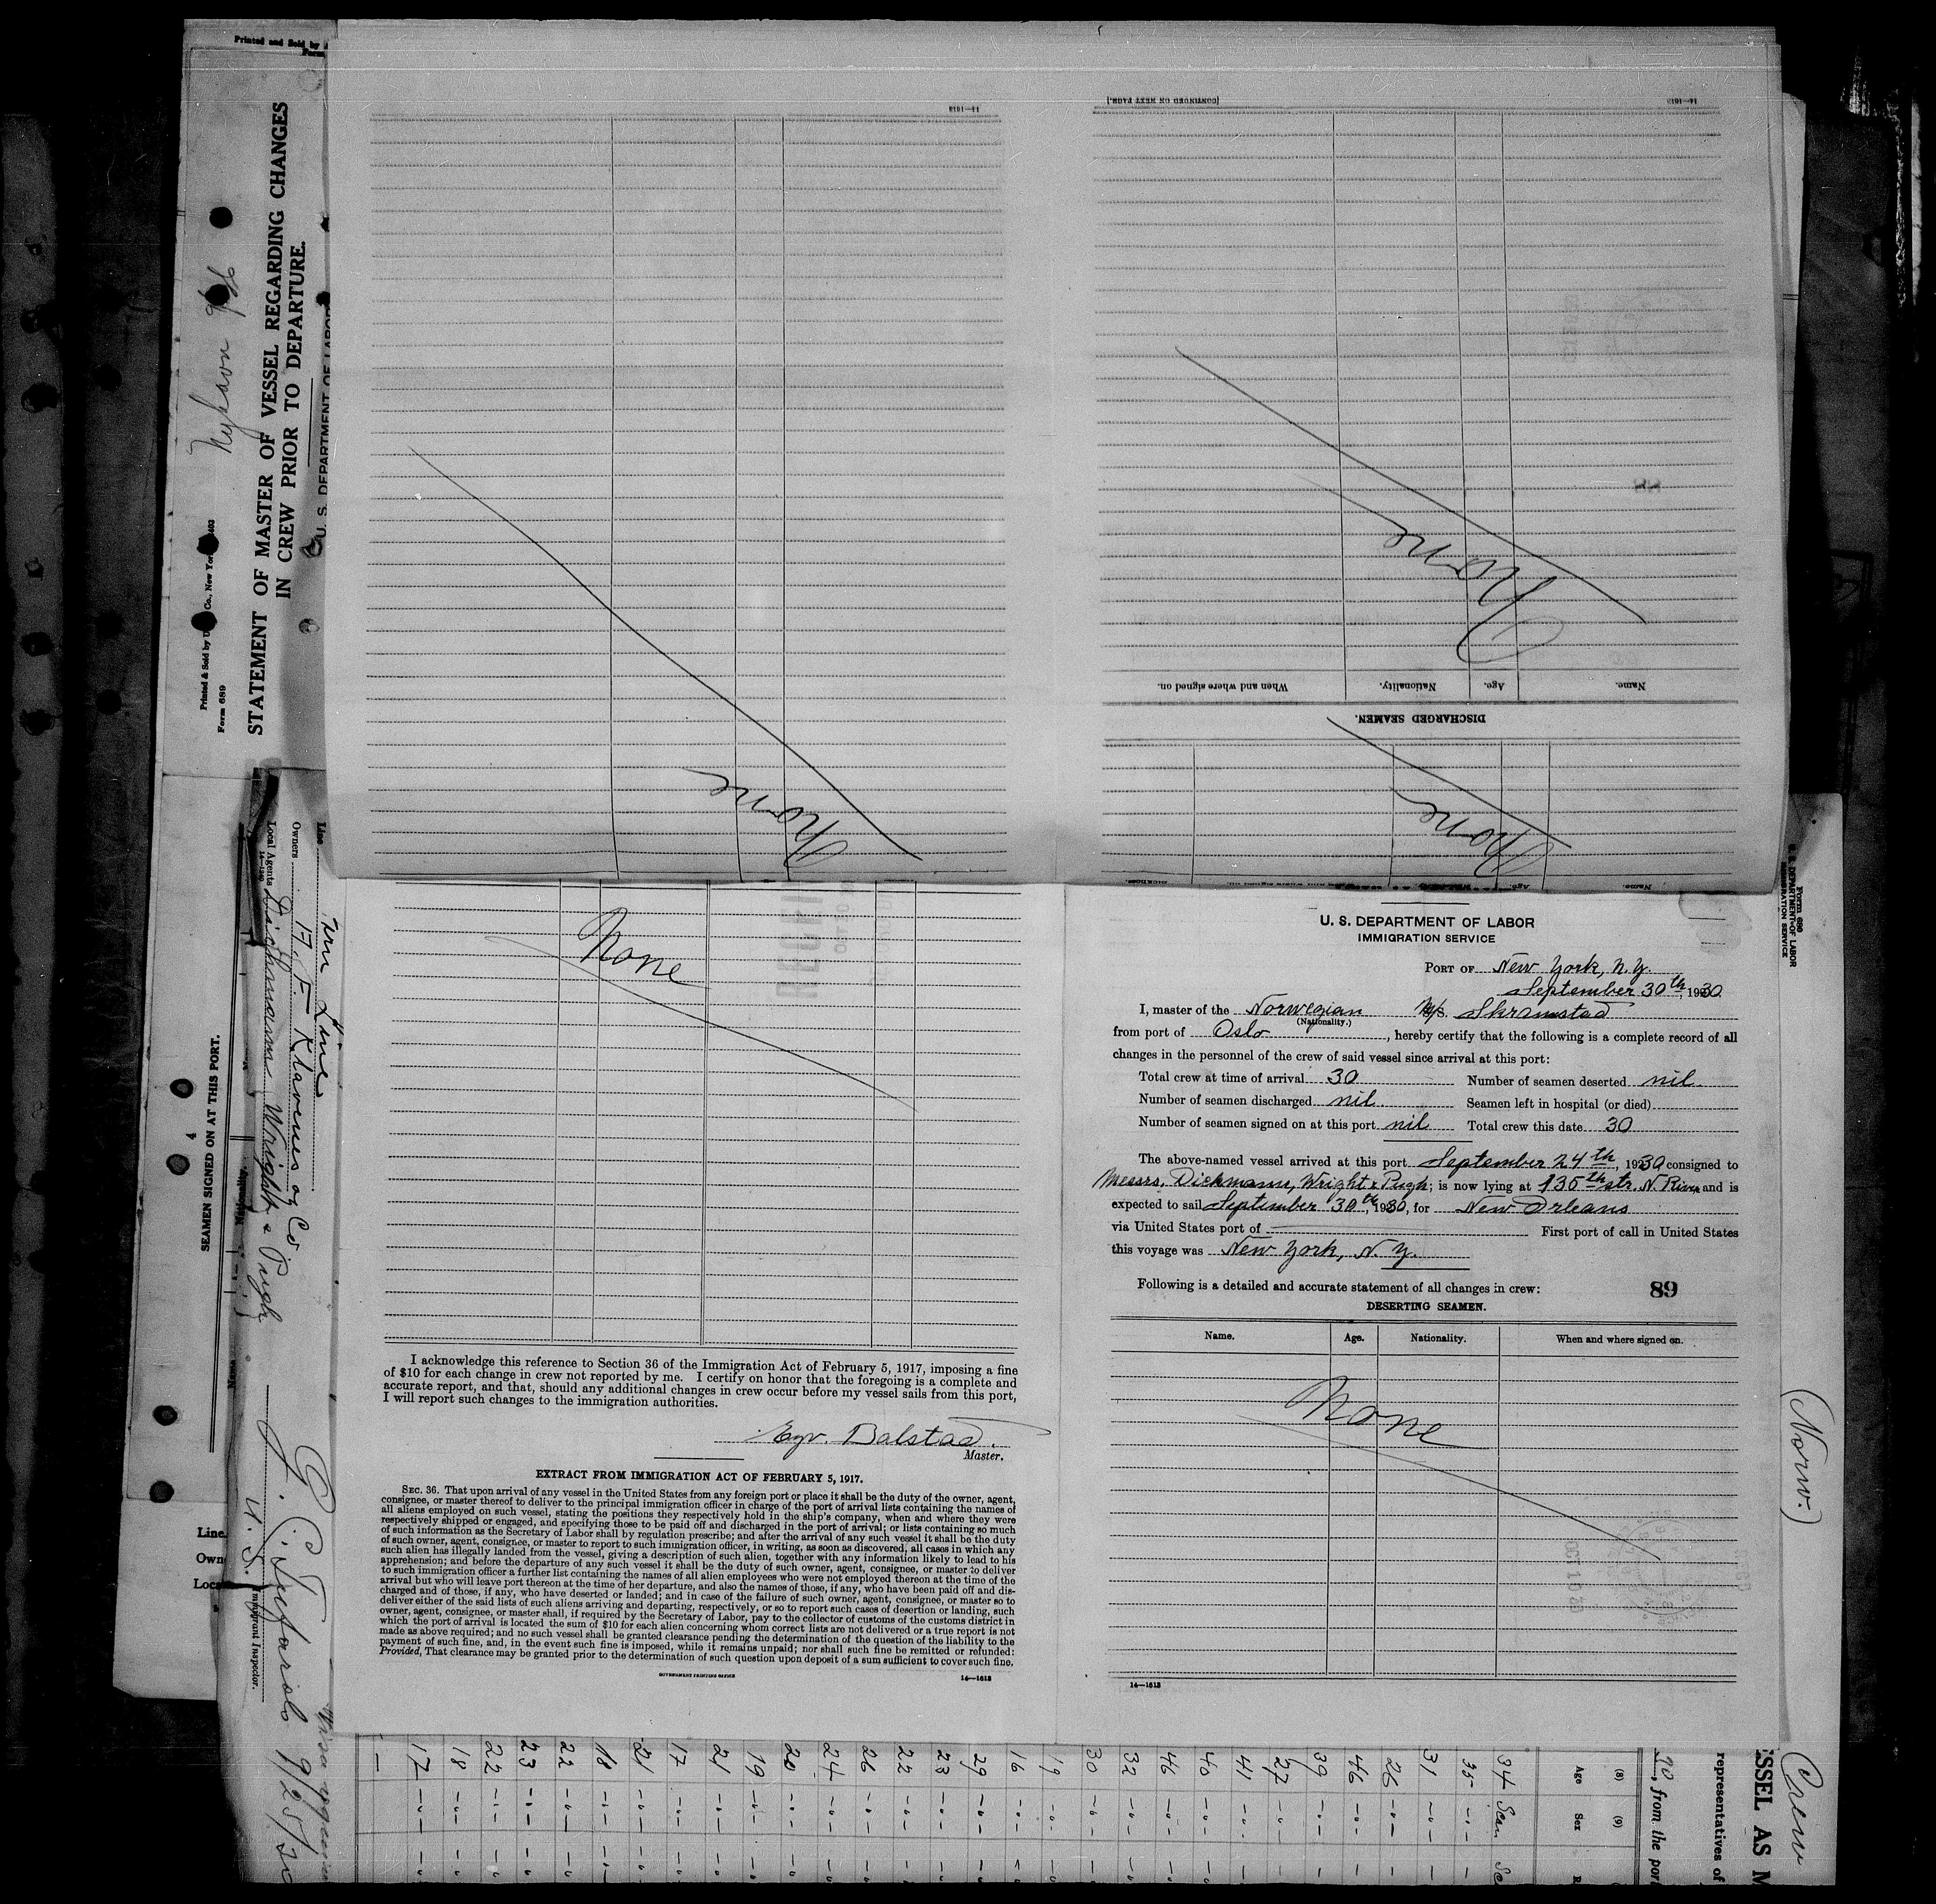 Printed and Sold by
STATEMENT OF MASTER OF VESSEL REGARDING CHANGES
IN CREW PRIOR TO DEPARTURE.
U. S. DEPARTMENT OF LABOR
Printed & Sold by U Co., New York
Form 689
[CONTINUED ON NEXT PAGE.]
14—1613
14—1613
None
None
DISCHARGED SEAMEN.
Name. Age. Nationality. When and where signed on.
None
4
SEAMEN SIGNED ON AT THIS PORT.
Line Fern Line
Owners H. F. Klaveness og Co
Local Agents Dichmann Wright & Pugh
14—1240
U. S. Immigrant Inspector.
9/25/30
None
I acknowledge this reference to Section 36 of the Immigration Act of February 5, 1917, imposing a fine
of $10 for each change in crew not reported by me. I certify on honor that the foregoing is a complete and
accurate report, and that, should any additional changes in crew occur before my vessel sails from this port,
I will report such changes to the immigration authorities.
Balstad.
Master.
EXTRACT FROM IMMIGRATION ACT OF FEBRUARY 5, 1917.
SEC. 36. That upon arrival of any vessel in the United States from any foreign port or place it shall be the duty of the owner, agent,
consignee, or master thereof to deliver to the principal immigration officer in charge of the port of arrival lists containing the names of
all aliens employed on such vessel, stating the positions they respectively hold in the ship's company, when and where they were
respectively shipped or engaged, and specifying those to be paid off and discharged in the port of arrival; or lists containing so much
of such information as the Secretary of Labor shall by regulation prescribe; and after the arrival of any such vessel it shall be the duty
of such owner, agent, consignee, or master to report to such immigration officer, in writing, as soon as discovered, all cases in which any
such alien has illegally landed from the vessel, giving a description of such alien, together with any information likely to lead to his
apprehension; and before the departure of any such vessel it shall be the duty of such owner, agent, consignee, or master to deliver
to such immigration officer a further list containing the names of all alien employees who were not employed thereon at the time of the
arrival but who will leave port thereon at the time of her departure, and also the names of those, if any, who have been paid off and dis-
charged and of those, if any, who have deserted or landed; and in case of the failure of such owner, agent, consignee, or master so to
deliver either of the said lists of such aliens arriving and departing, respectively, or so to report such cases of desertion or landing, such
owner, agent, consignee, or master shall, if required by the Secretary of Labor, pay to the collector of customs of the customs district in
which the port of arrival is located the sum of $10 for each alien concerning whom correct lists are not delivered or a true report is not
made as above required; and no such vessel shall be granted clearance pending the determination of the question of the liability to the
payment of such fine, and, in the event such fine is imposed, while it remains unpaid; nor shall such fine be remitted or refunded:
Provided, That clearance may be granted prior to the determination of such question upon deposit of a sum sufficient to cover such fine.
GOVERNMENT PRINTING OFFICE
14—1613
U. S. DEPARTMENT OF LABOR
IMMIGRATION SERVICE
PORT OF New York, N. Y.
September 30th, 1930
I, master of the Norwegian M/S. Skramstad
(Nationality.)
from port of Oslo, hereby certify that the following is a complete record of all
changes in the personnel of the crew of said vessel since arrival at this port:
Total crew at time of arrival 30 Number of seamen deserted nil
Number of seamen discharged nil. Seamen left in hospital (or died)
Number of seamen signed on at this port nil Total crew this date 30
The above-named vessel arrived at this port September 24th, 1930 consigned to
Messrs. Dickmann, Wright & Pugh; is now lying at 135th str. N. River and is
expected to sail September 30th, 1930, for New Orleans
via United States port of First port of call in United States
this voyage was New York, N. Y.
Following is a detailed and accurate statement of all changes in crew:
89
DESERTING SEAMEN.
Name. Age. Nationality. When and where signed on.
None
14—1613
Form 680
U. S. DEPARTMENT OF LABOR
IMMIGRATION SERVICE
(Norw.)
Crew
SSEL AS M
representatives of
, from the port
(8) (9)
Age Sex
34
35
31
26
46
39
27
41
40
46
32
30
19
16
29
23
22
26
24
20
19
21
17
21
18
22
23
22
18
17